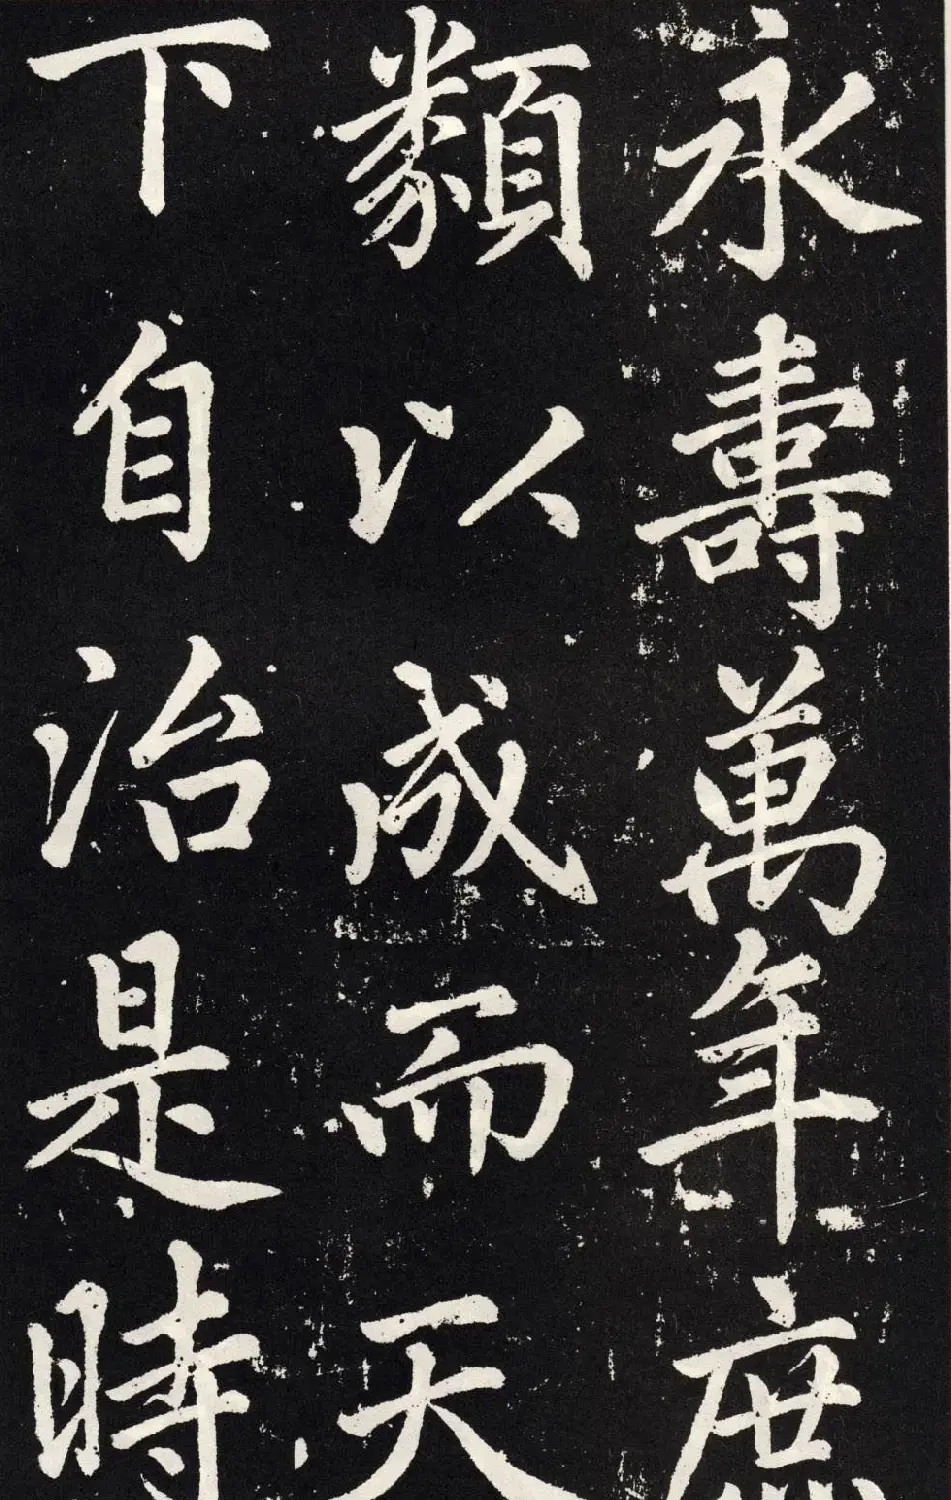 永壽萬年庶
類以成而天
下自治是時